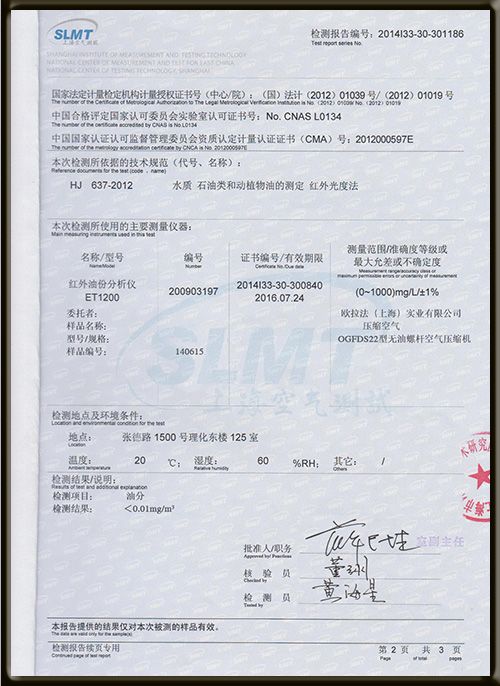 SLMT
上海空气测试
检测报告编号: 2014I33-30-301186
Test report series No.
SHANGHAI INSTITUTE OF MEASUREMENT AND TESTING TECHNOLOGY
NATIONAL CENTER OF MEASUREMENT AND TEST FOR EAST CHINA
NATIONAL CENTER OF TESTING TECHNOLOGY, SHANGHAI
国家法定计量检定机构计量授权证书号(中心/院): (国)法计(2012)01039号/(2012)01019号
The number of the Certificate of Metrological Authorization to The Legal Metrological Verification Institution is No. (2012) 01039/ No. (2012) 01019
中国合格评定国家认可委员会实验室认可证书号: No. CNAS L0134
The number of the certificate accredited by CNAS is No.L0134
中国国家认证认可监督管理委员会资质认定计量认证证书(CMA)号: 2012000597E
The number of the metrology accreditation certificate by CNCA is No. 2012000597E
本次检测所依据的技术规范(代号、名称):
Reference documents for the test (code 、name)
HJ 637-2012 水质 石油类和动植物油的测定 红外光度法
本次检测所使用的主要测量仪器:
Main measuring instruments used in this test
名称/型号 编号 证书编号/有效期限 测量范围/准确度等级或最大允差或不确定度
Name/Model Number Certificate No./Due date Measurement range/accuracy class or maximum permissible errors or uncertainty of measurement
红外油份分析仪 ET1200 200903197 2014I33-30-300840 2016.07.24 (0~1000)mg/L/±1%
委托者: 欧拉法(上海)实业有限公司
样品名称: 压缩空气
型号/规格: OGFDS22型无油螺杆空气压缩机
样品编号: 140615
SLMT
上海空气测试
检测地点及环境条件:
Location and environmental condition for the test
地点: 张德路 1500 号理化东楼 125 室
Location
温度: 20 ℃; 湿度: 60 %RH; 其它: /
Ambient temperature Relative humidity Others
检测结果/说明:
Results of test and additional explanation
检测项目: 油分
检测结果: <0.01mg/m³
批准人/职务
Approved by/ Functions
核验员
Checked by
检测员
Tested by
黄海星
本报告提供的结果仅对本次被测的样品有效。
The data are valid only for the sample(s).
检测报告续页专用
Continued page of test report
第 2 页 共 3 页
Page of total pages